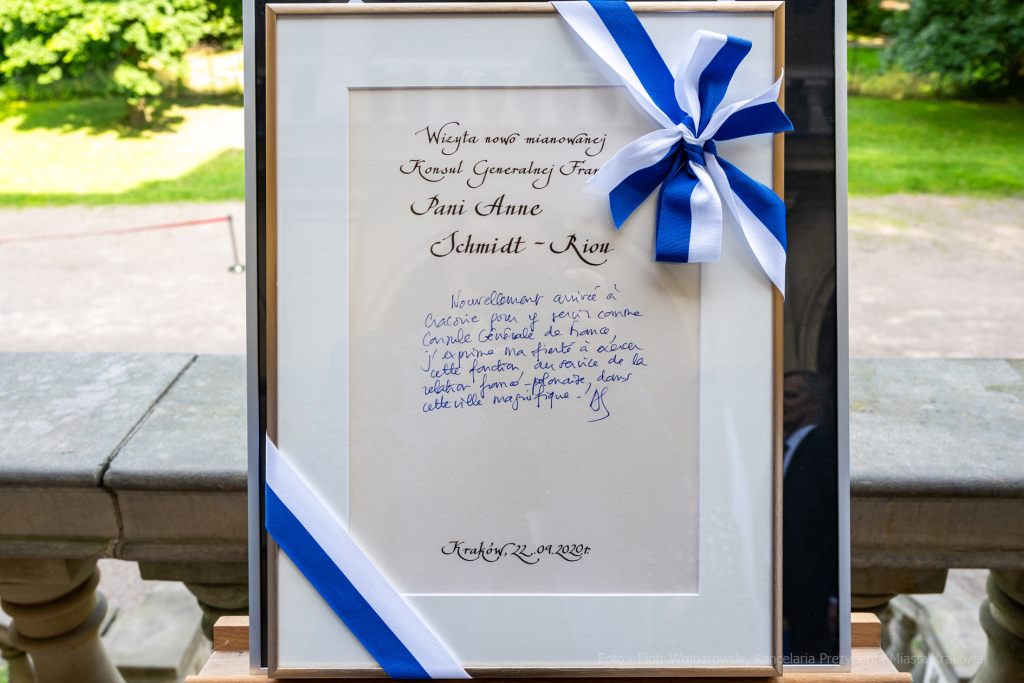 Wizyta nowo mianowanej
Konsul Generalnej Fran
Pani Anne
Schmidt - Riou
Nouvellement arrivée à
Cracovie pour y servir comme
Consule Générale de France,
j'exprime ma fierté à exercer
cette fonction au service de la
relation franco-polonaise, dans
cette ville magnifique. AS
Kraków, 22.09.2020r.
Foto - Piotr Wojnarowski, Kancelaria Prezydenta Miasta Krakowa